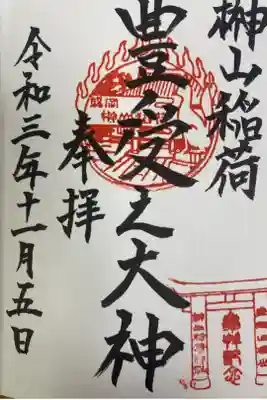 榊山稲荷
豊受之大神
奉拝
令和三年十一月五日